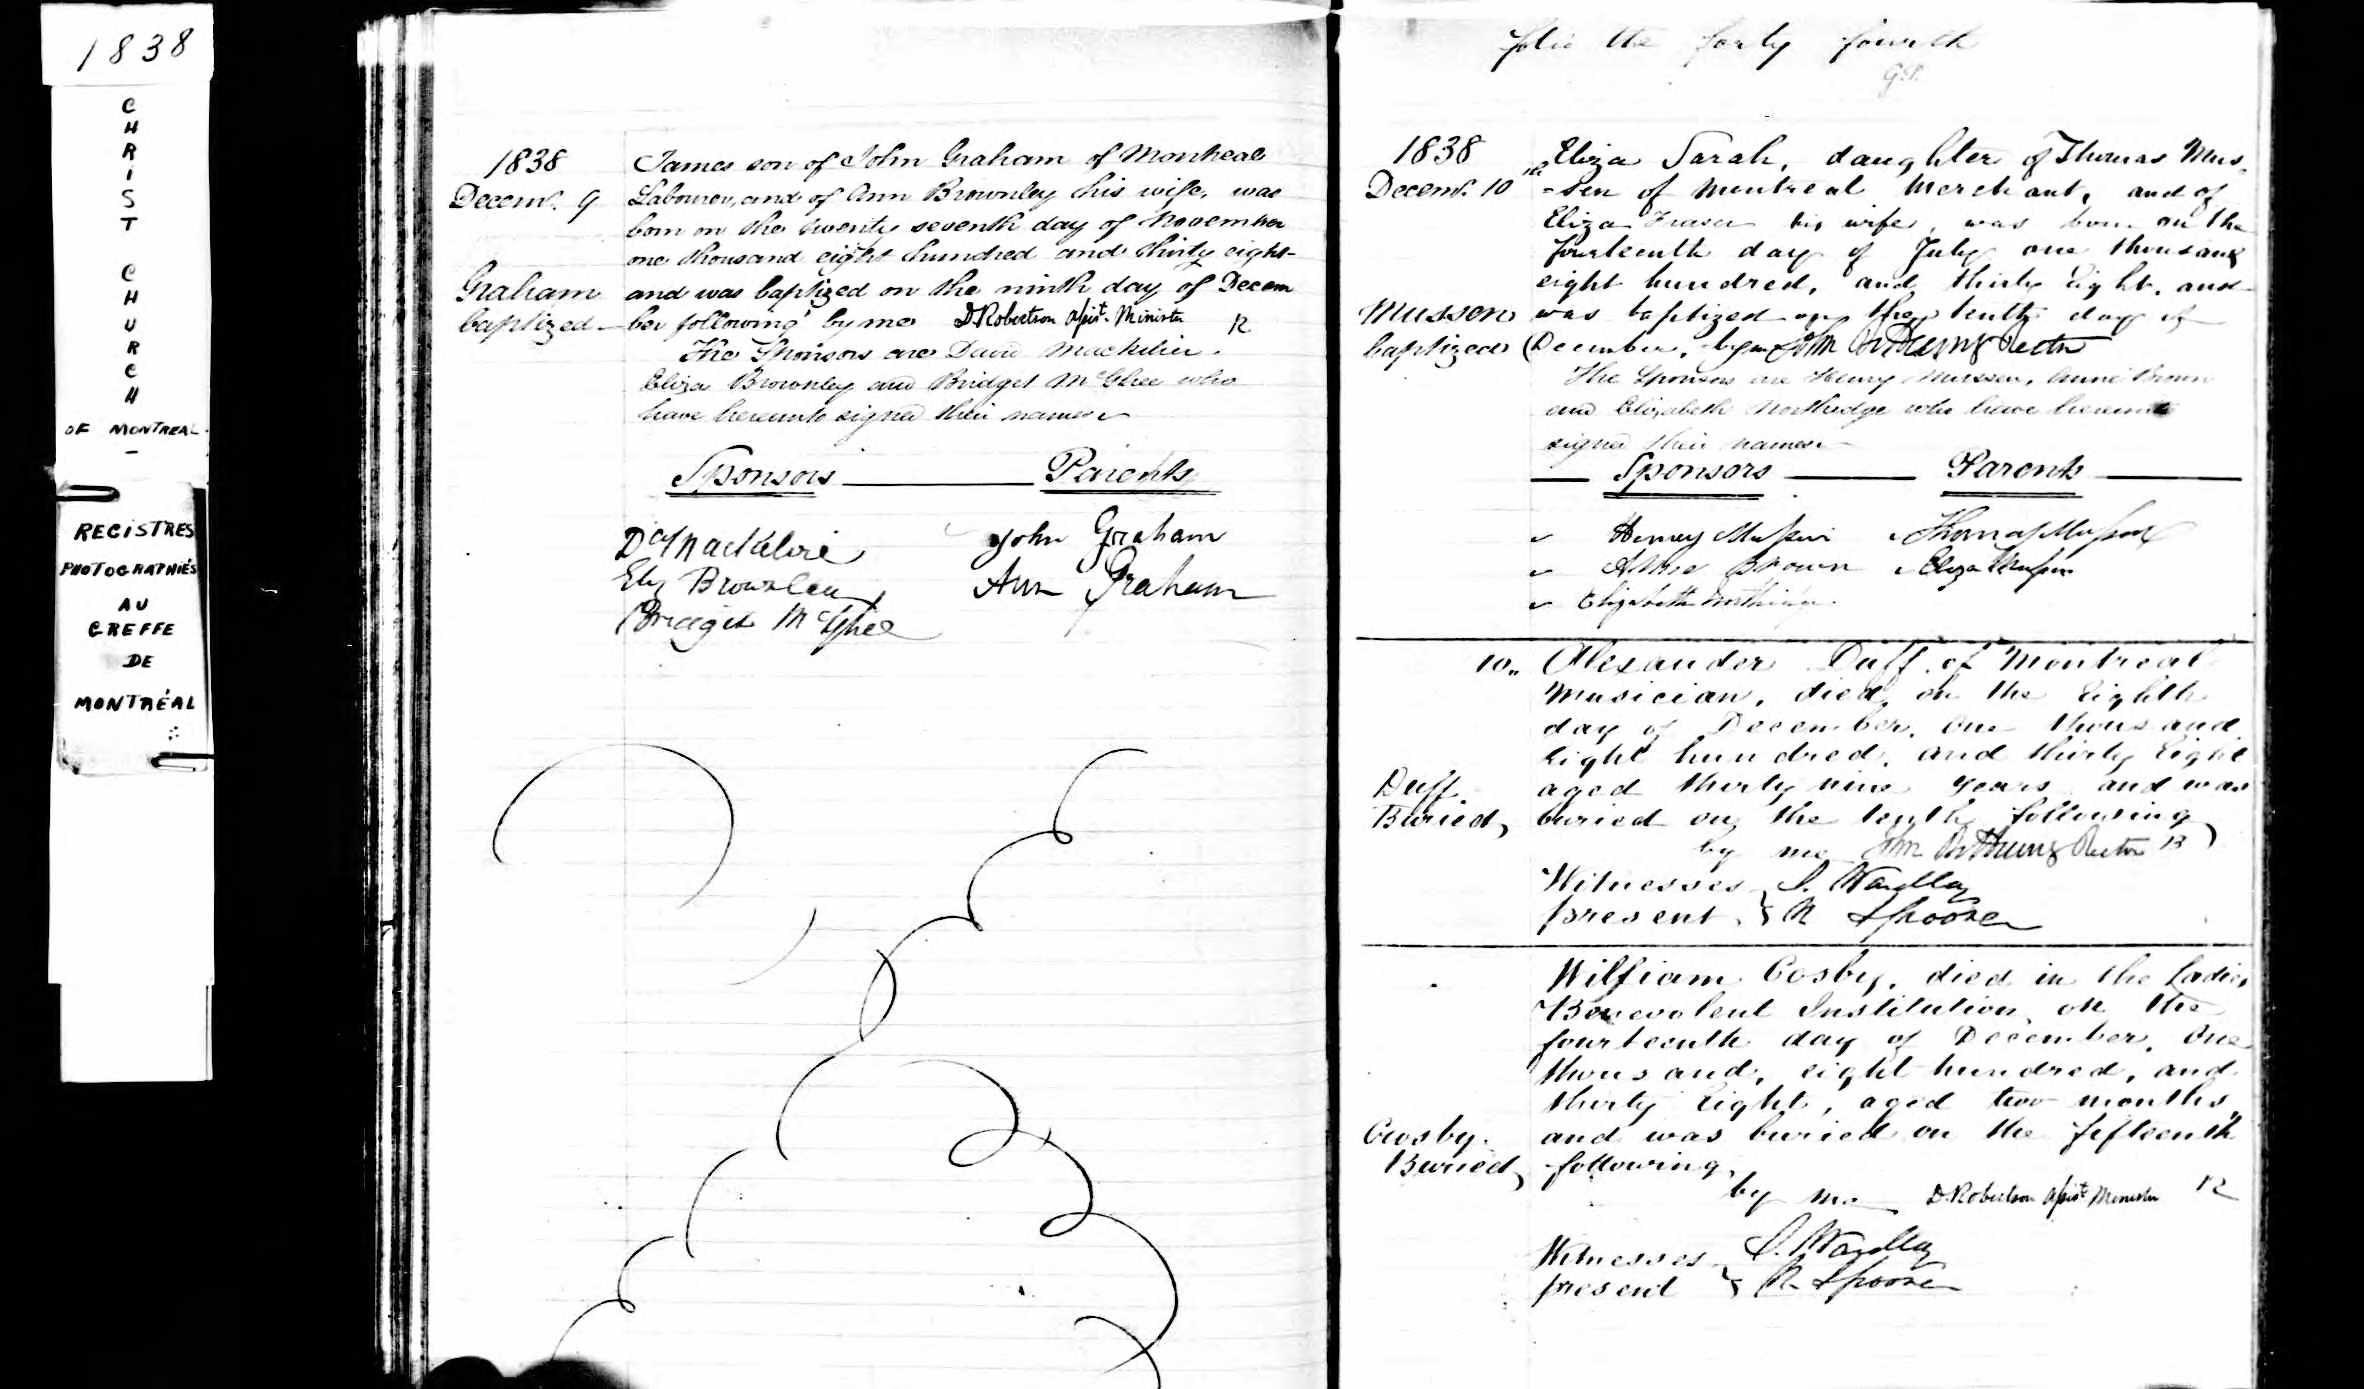 1838
CHRIST
CHURCH
OF MONTREAL
REGISTRES
PHOTOGRAPHIÉS
AU
GREFFE
DE
MONTRÉAL
1838
Decemr. 9
Graham
baptized
James son of John Graham of Montreal
Labourer, and of Ann Brownley his wife, was
born on the twenty seventh day of November
one thousand eight hundred and thirty eight
and was baptized on the ninth day of Decem
ber following by me D Robertson Assist. Minister
The Sponsors are David Mackilvie
Eliza Brownley and Bridget McGhee who
have hereunto signed their names
Sponsors Parents
John Graham
Ann Graham
Bridget McGhee
folio the forty fourth
1838
Decemr. 10th
Mussen
baptized
Eliza Sarah, daughter of Thomas Mus
=sen of Montreal Merchant, and of
Eliza Fraser his wife, was born on the
fourteenth day of July one thousand
eight hundred, and thirty Eight, and
was baptized on the tenth day of
December, by me John Rector
The Sponsors are Henry Mussen, Anne Brown
and Elizabeth Northedge who have hereunto
signed their names
Sponsors Parents
Henry Mussen Thomas Mussen
Anne Brown Eliza Mussen
Elizabeth
10
Duff.
Buried,
Alexander Duff of Montreal
Musician, died, on the Eighth
day of December, One thousand
Eight hundred, and thirty Eight
aged thirty nine years and was
buried on the tenth following
by me John Rector
Witnesses
present
Cosby.
Buried,
William Cosby, died in the Ladies
Benevolent Institution, on the
fourteenth day of December, One
thousand, eight hundred, and
thirty Eight, aged two months,
and was buried on the fifteenth
following,
by me D. Robertson Assist Minister
Witnesses
present